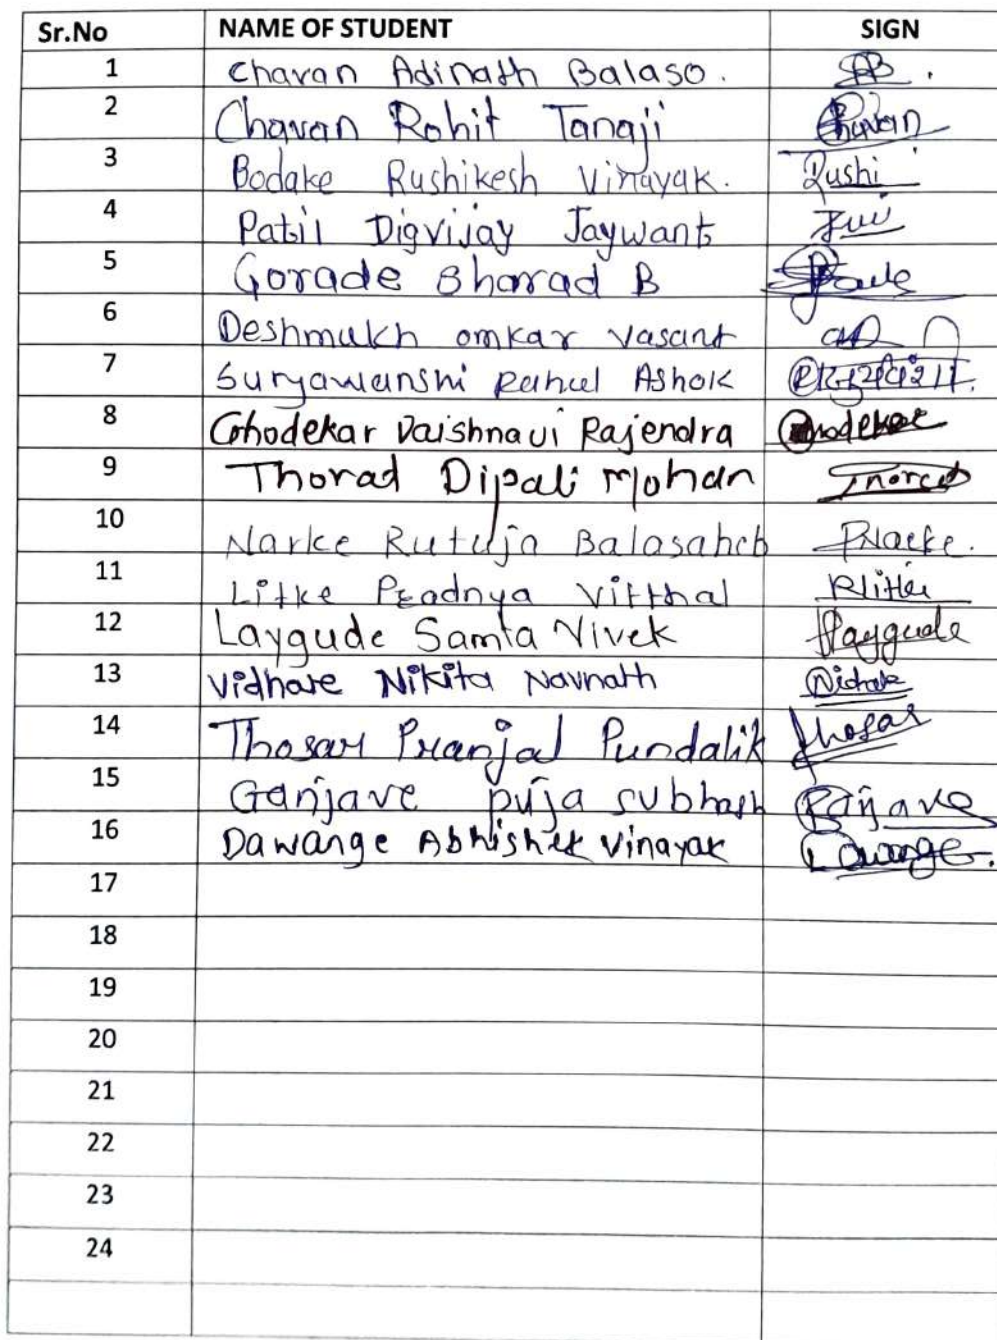 Sr.No NAME OF STUDENT SIGN
1 Chavan Adinath Balaso.
2 Chavan Rohit Tanaji Chavan
3 Bodake Rushikesh Vinayak. Rushi
4 Patil Digvijay Jaywant
5 Gorade Sharad B
6 Deshmukh omkar vasant
7 Suryawanshi Rahul Ashok
8 Ghodekar Vaishnavi Rajendra Ghodekar
9 Thorad Dipali Mohan Thorad
10 Narke Rutuja Balasaheb RNarke.
11 Litke Pradnya Vitthal
12 Laygude Samta Vivek Laygude
13 Vidhate Nikita Navnath
14 Thosar Pranjal Pundalik Thosar
15 Ganjave puja subhash Ganjave
16 Dawange Abhishek Vinayak Dawange.
17
18
19
20
21
22
23
24